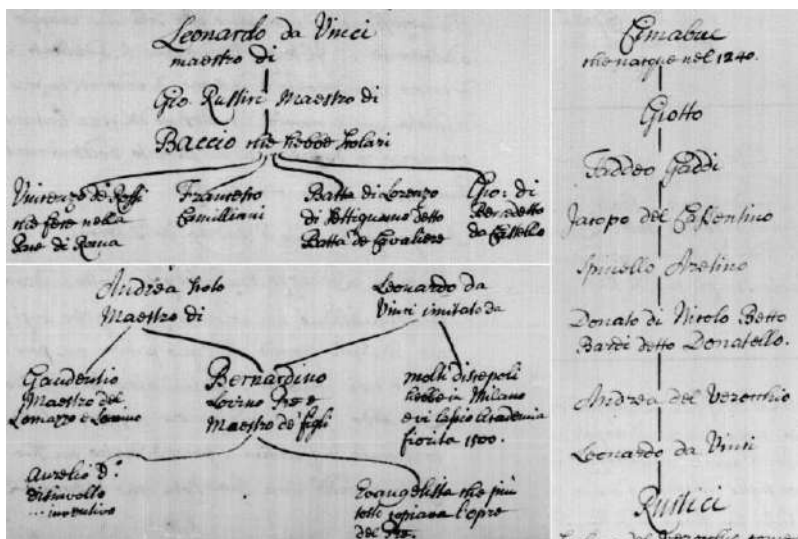 Leonardo da Vinci
maestro di
Gio. Rustici Maestro di
Baccio che hebbe scolari
Vincenzo de Rossi
che fece nella
di Roma
Francesco
Camilliani
Batta di Lorenzo
di Settignano detto
Batta de Cavaliere
Gio: di
Benedetto
da Castello
Andrea
Maestro di
Leonardo da
Vinci imitato da
Gaudentio
Maestro del
Lomazzo e
Bernardino
Lovino
Maestro de figli
molti discepoli
hebbe in Milano
e vi lasciò Academia
fiorita 1500.
Aurelio
inventivo
Evangelista che più
tosto copiava l'opre
del
Cimabue
che nacque nel 1240.
Giotto
Taddeo Gaddi
Jacopo del Casentino
Spinello Aretino
Donato di Nicolo Betto
Bardi detto Donatello.
Andrea del Verocchio
Leonardo da Vinci
Rustici